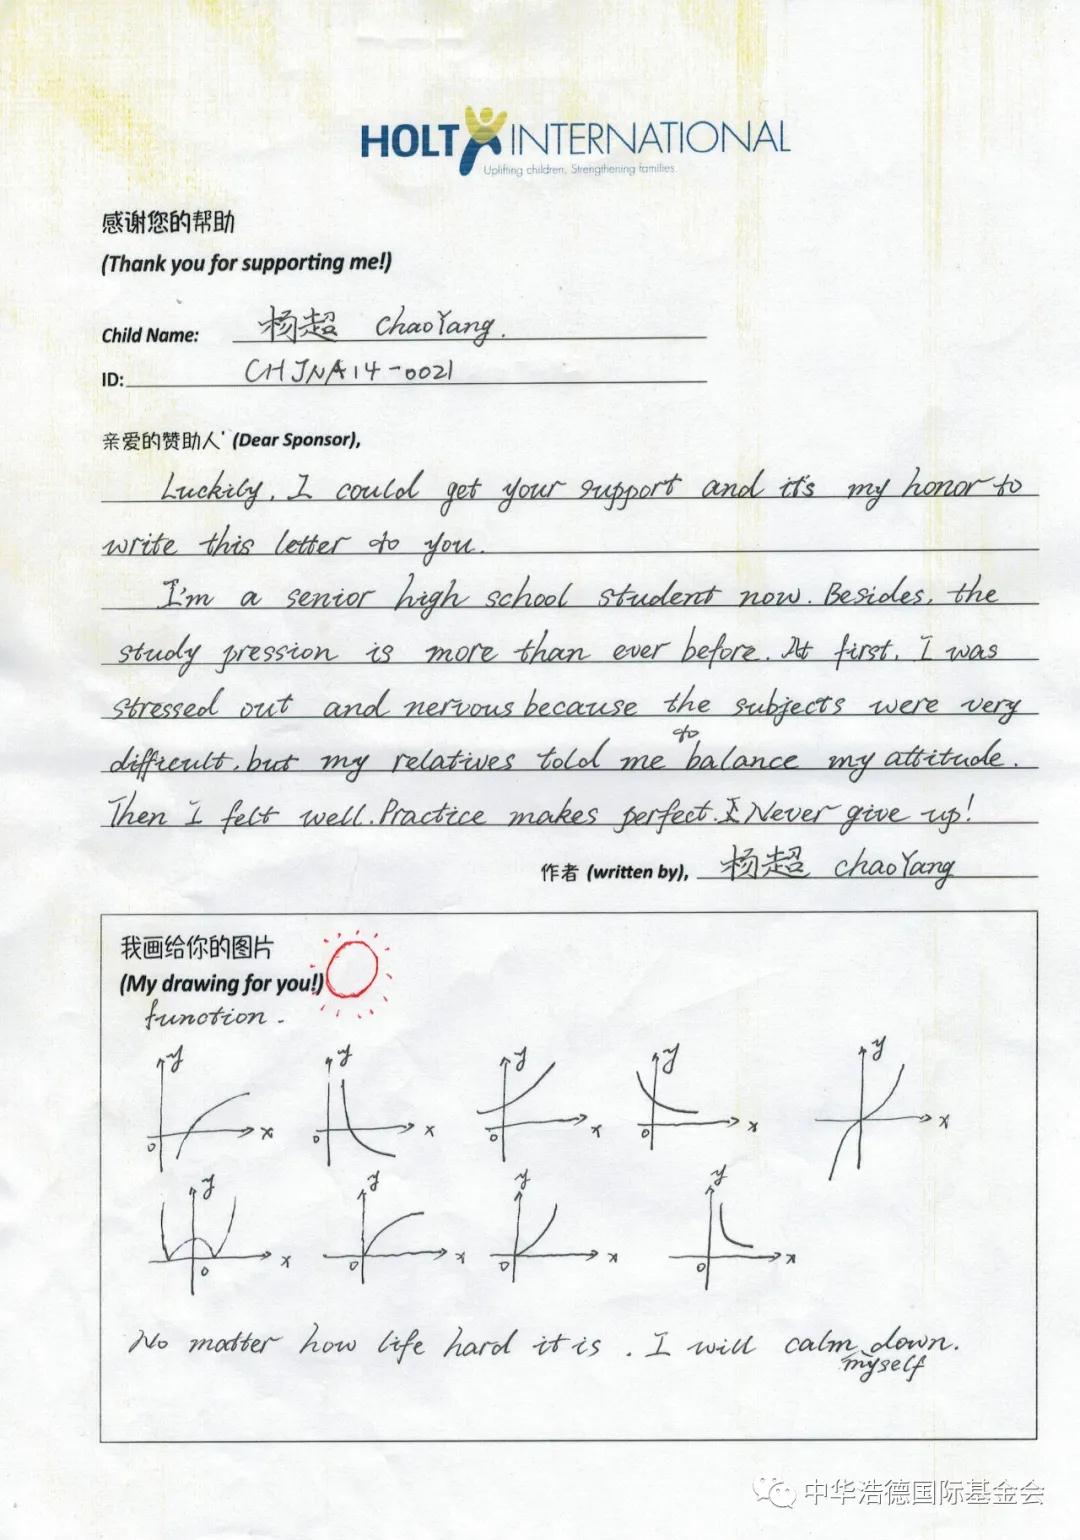 HOLT INTERNATIONAL
Uplifting children. Strengthening families.
感谢您的帮助
(Thank you for supporting me!)
Child Name: 杨超 ChaoYang.
ID: CHINA14-0021
亲爱的赞助人' (Dear Sponsor),
Luckily, I could get your support and it's my honor to
write this letter to you.
I'm a senior high school student now. Besides, the
study pression is more than ever before. At first, I was
stressed out and nervous because the subjects were very
difficult, but my relatives told me to balance my attitude.
Then I felt well. Practice makes perfect. I Never give up!
作者 (written by), 杨超 chaoYang
我画给你的图片
(My drawing for you!)
function.
y y y y y
0 x 0 x 0 x 0 x x
y y y y
0 x 0 x 0 x 0 x
No matter how life hard it is. I will calm myself down.
中华浩德国际基金会